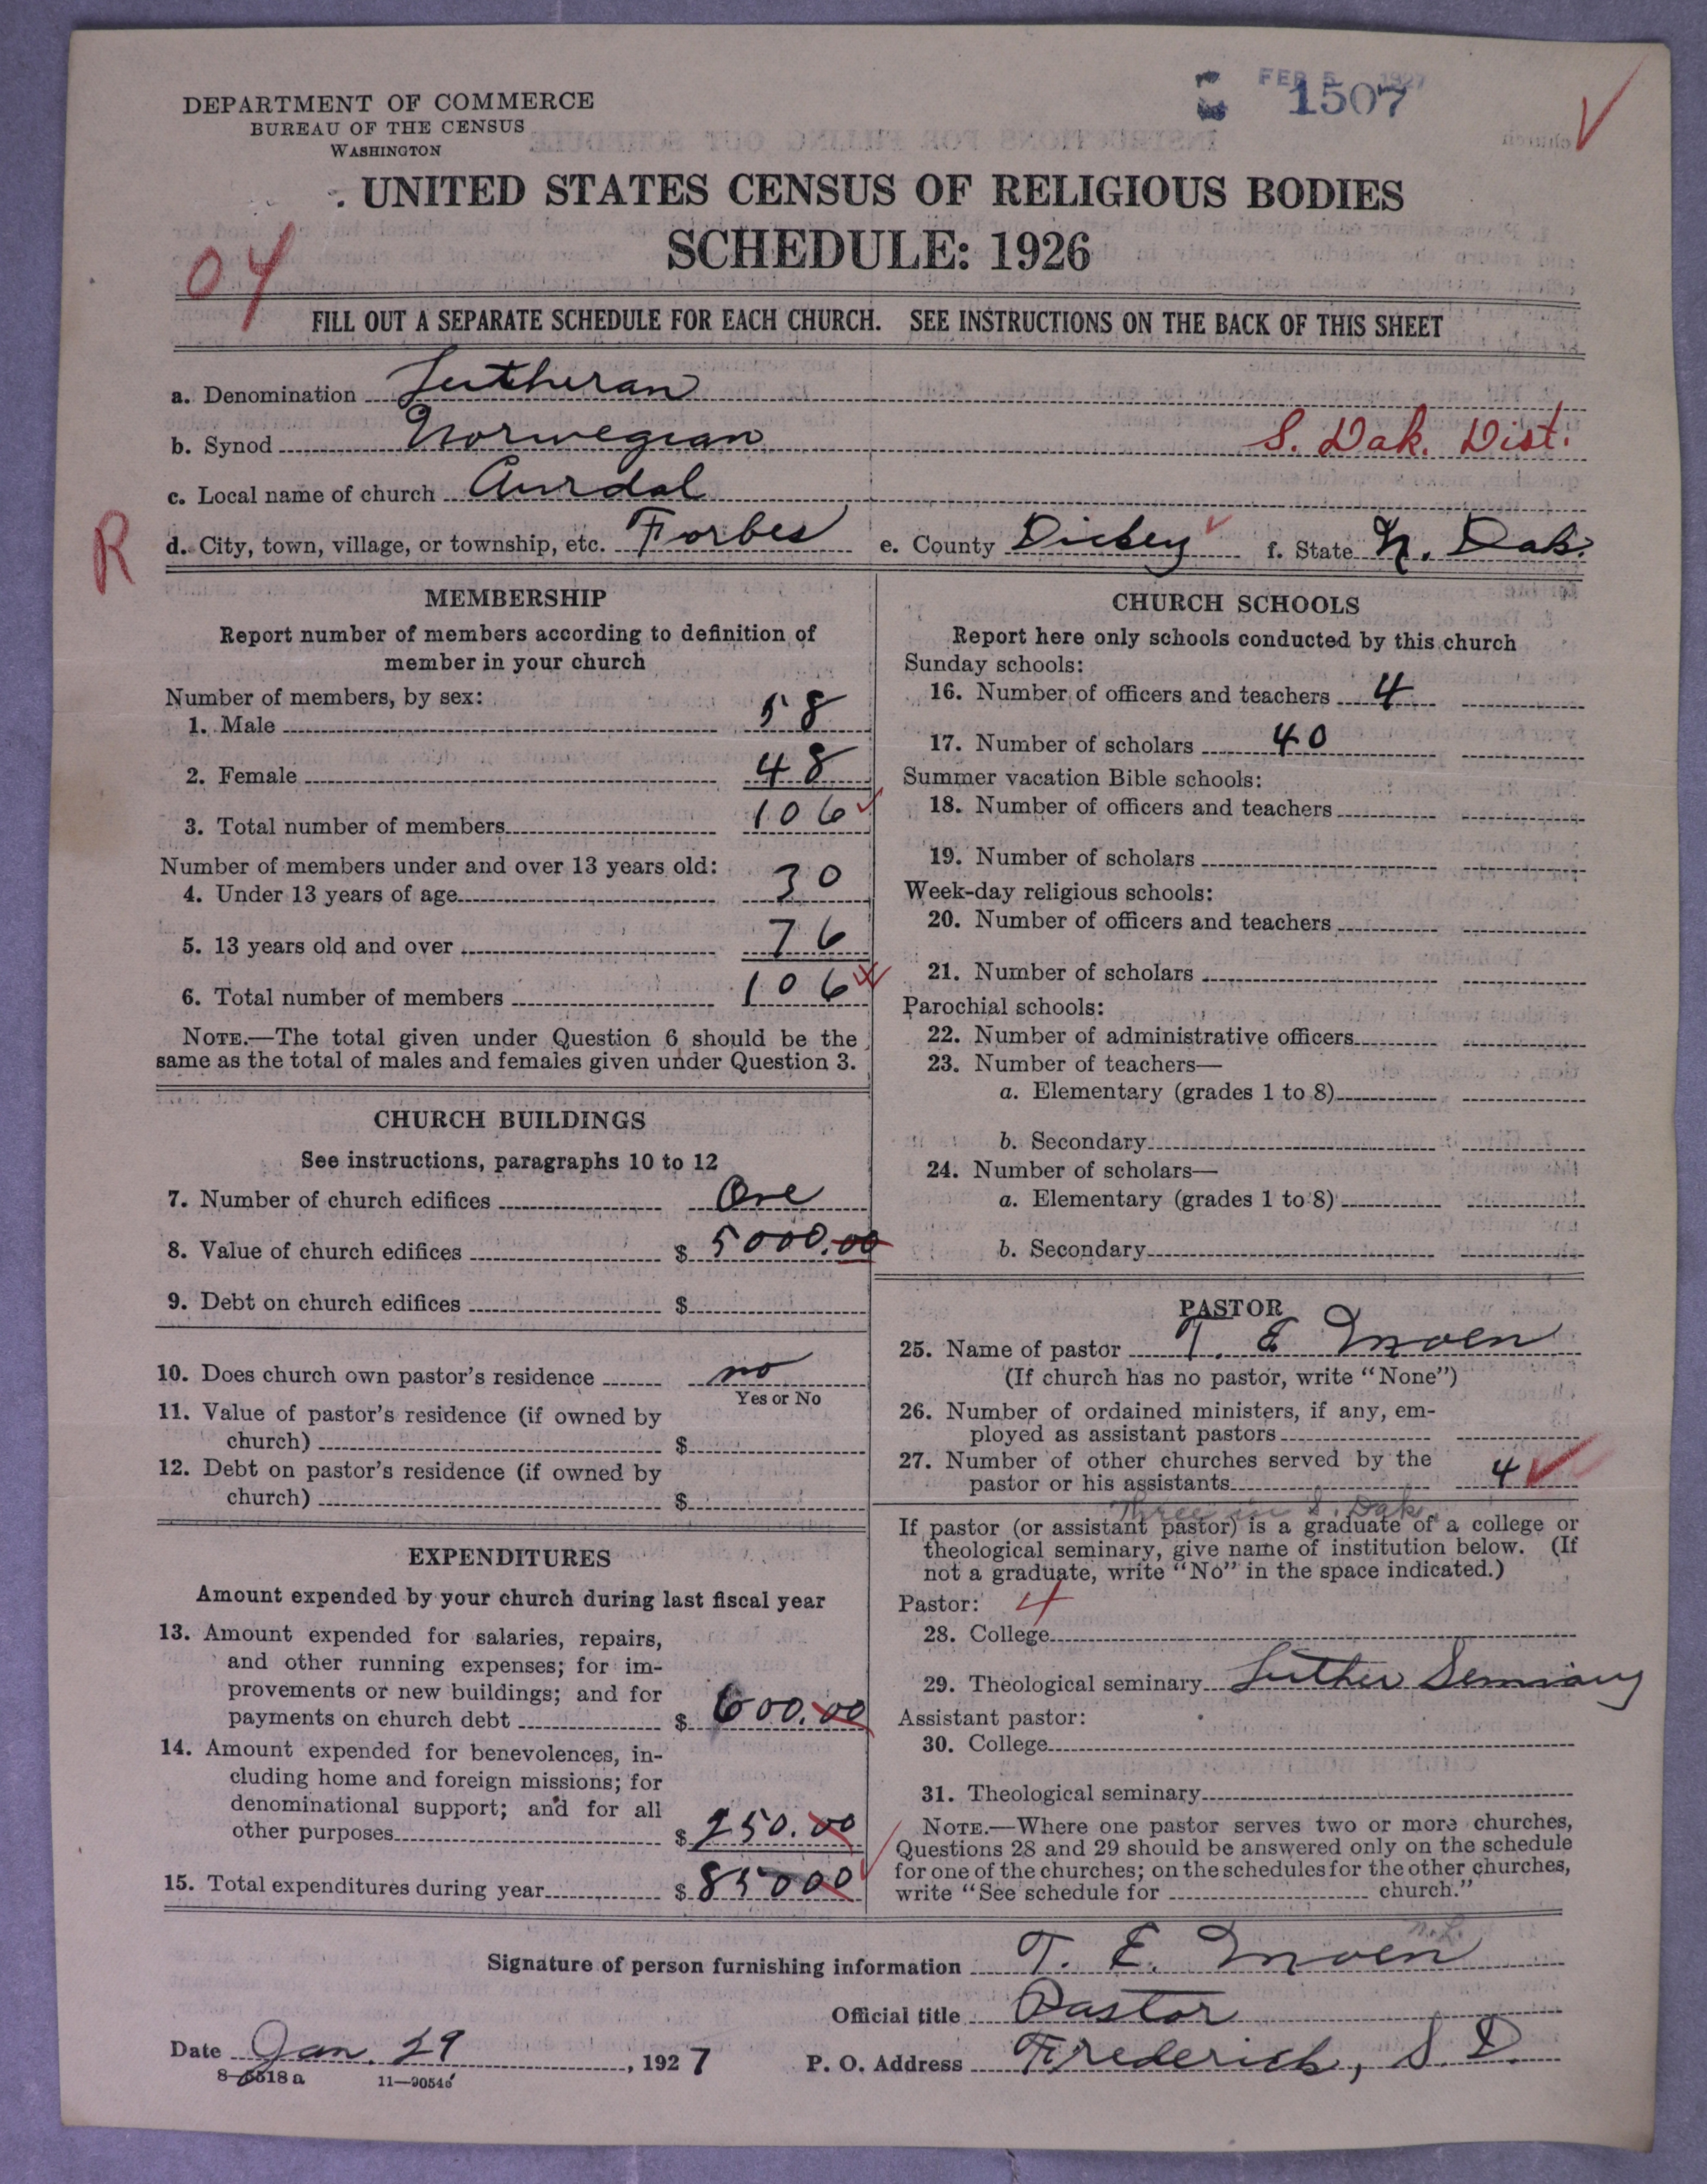 FEB 5 1927
1507
DEPARTMENT OF COMMERCE
BUREAU OF THE CENSUS
WASHINGTON
UNITED STATES CENSUS OF RELIGIOUS BODIES
SCHEDULE: 1926
04
FILL OUT A SEPARATE SCHEDULE FOR EACH CHURCH. SEE INSTRUCTIONS ON THE BACK OF THIS SHEET
a. Denomination Lutheran
b. Synod Norwegian S. Dak. Dist.
c. Local name of church Aurdal
R
d. City, town, village, or township, etc. Forbes e. County Dickey f. State N. Dak.
MEMBERSHIP
Report number of members according to definition of
member in your church
Number of members, by sex:
1. Male 58
2. Female 48
3. Total number of members 106
Number of members under and over 13 years old:
4. Under 13 years of age 30
5. 13 years old and over 76
6. Total number of members 106
NOTE.—The total given under Question 6 should be the
same as the total of males and females given under Question 3.
CHURCH BUILDINGS
See instructions, paragraphs 10 to 12
7. Number of church edifices One
8. Value of church edifices $ 5000.00
9. Debt on church edifices $
10. Does church own pastor's residence no
Yes or No
11. Value of pastor's residence (if owned by
church) $
12. Debt on pastor's residence (if owned by
church) $
EXPENDITURES
Amount expended by your church during last fiscal year
13. Amount expended for salaries, repairs,
and other running expenses; for im-
provements or new buildings; and for
payments on church debt $ 600.00
14. Amount expended for benevolences, in-
cluding home and foreign missions; for
denominational support; and for all
other purposes $ 250.00
15. Total expenditures during year $ 85000
CHURCH SCHOOLS
Report here only schools conducted by this church
Sunday schools:
16. Number of officers and teachers 4
17. Number of scholars 40
Summer vacation Bible schools:
18. Number of officers and teachers
19. Number of scholars
Week-day religious schools:
20. Number of officers and teachers
21. Number of scholars
Parochial schools:
22. Number of administrative officers
23. Number of teachers—
a. Elementary (grades 1 to 8)
b. Secondary
24. Number of scholars—
a. Elementary (grades 1 to 8)
b. Secondary
PASTOR
25. Name of pastor T. E Moen
(If church has no pastor, write "None")
26. Number of ordained ministers, if any, em-
ployed as assistant pastors
27. Number of other churches served by the
pastor or his assistants 4
Three in S. Dak.
If pastor (or assistant pastor) is a graduate of a college or
theological seminary, give name of institution below. (If
not a graduate, write "No" in the space indicated.)
Pastor: 4
28. College
29. Theological seminary Luther Seminary
Assistant pastor:
30. College
31. Theological seminary
NOTE.—Where one pastor serves two or more churches,
Questions 28 and 29 should be answered only on the schedule
for one of the churches; on the schedules for the other churches,
write "See schedule for church."
Signature of person furnishing information T. E. Moen
Official title Pastor
Date Jan. 29, 1927 P. O. Address Frederick, S. D.
8—5518a 11—90546